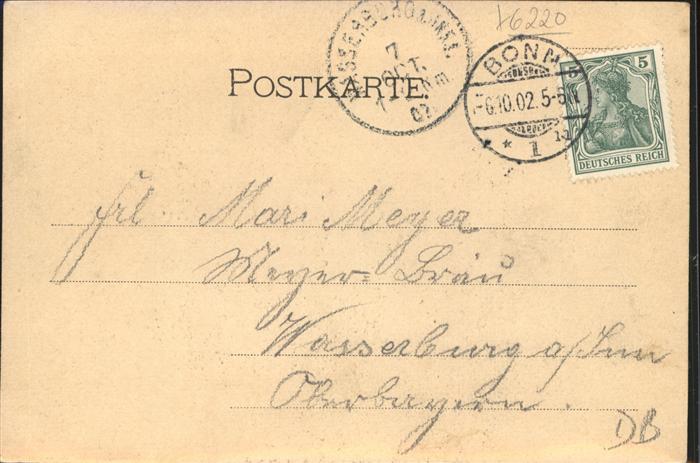 *6220
POSTKARTE.
WASSERBURG A. INN.
7
OCT.
02
BONN
-6.10.02.5-6N
* 1
5
DEUTSCHES REICH
frl. Mari Meyer
Meyer=Bräu
Wasserburg a/Inn
Oberbayern.
DB